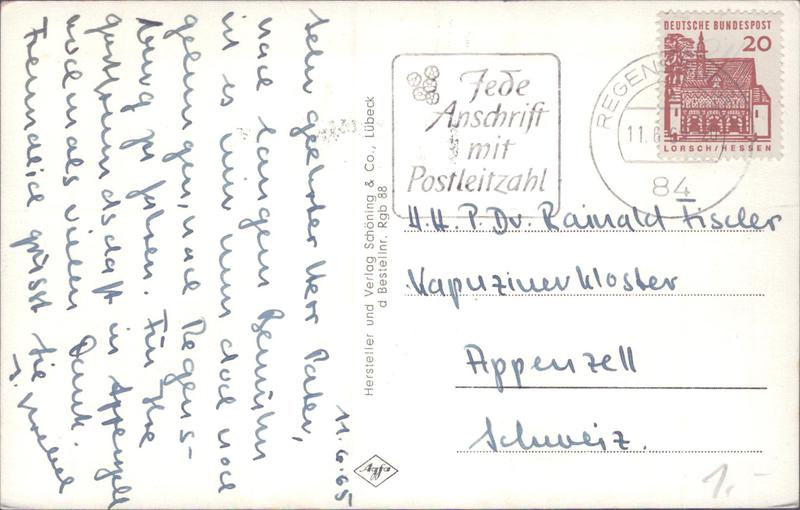 11.6.65
Sehr geehrter Herr Pater,
nach langem Bemühn
ist es mir nun doch noch
gelungen, nach Regens-
burg zu fahren. Für Ihre
gastfreundschaft in Appenzell
nochmals vielen Dank.
Freundlich grüsst Sie
Hersteller und Verlag Schöning & Co., Lübeck
d Bestellnr. Rgb 88
Agfa
Jede
Anschrift
mit
Postleitzahl
REGENS
11.6.
84
DEUTSCHE BUNDESPOST
20
LORSCH/HESSEN
H.H. P. Dr. Rainald Fischer
Kapuzinerkloster
Appenzell
Schweiz.
1.-